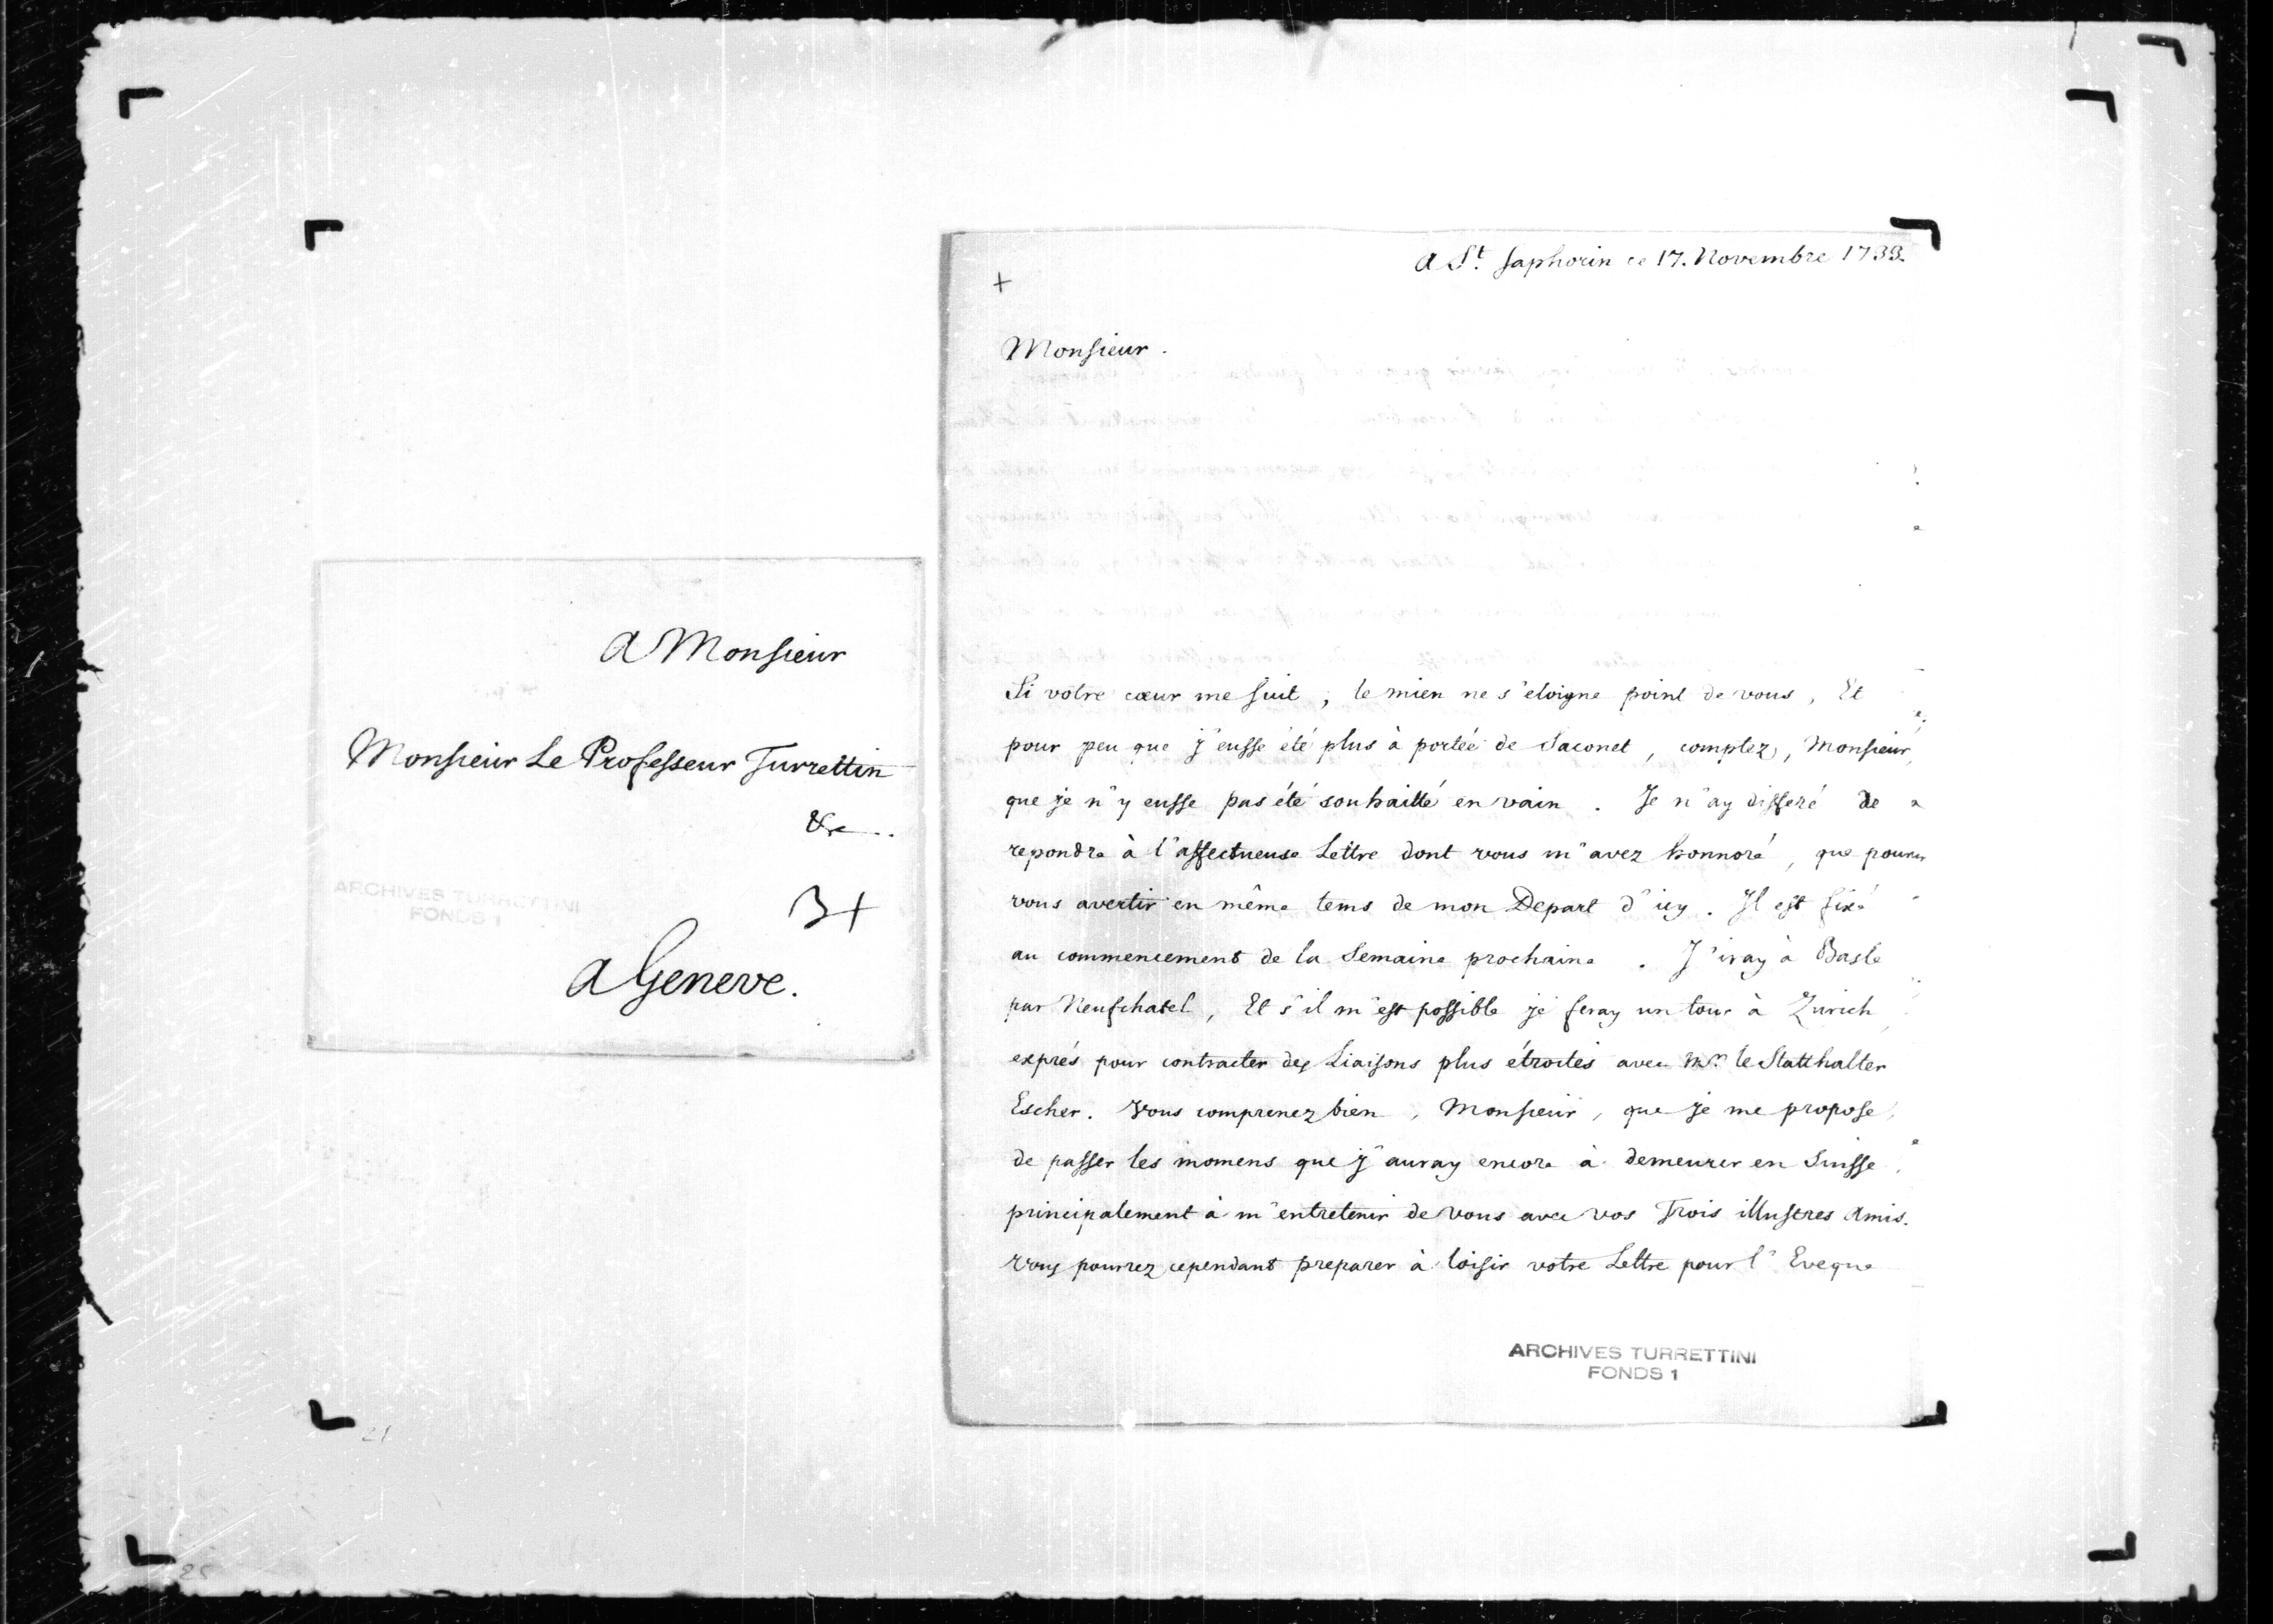 A Monsieur
Monsieur Le Professeur Turrettin
&c..
3+
ARCHIVES TURRETTINI
FONDS 1
A Geneve.
21
25
A St. Saphorin ce 17. Novembre 1733.
+
Monsieur.
Si votre cœur me suit, le mien ne s'eloigne point de vous, Et
pour peu que j'eusse été plus à portée de Saconet, comptez, Monsieur,
que je n'y eusse pas été souhaitté en vain. Je n'ay differé de
repondre à l'affectueuse Lettre dont vous m'avez honnoré, que pour
vous avertir en même tems de mon Depart d'icy. Il est fixé
au commencement de la Semaine prochaine. J'iray à Basle
par Neufchatel, Et s'il m'est possible je feray un tour à Zurich
exprés pour contracter des Liaisons plus étroites avec Mr. le Statthalter
Escher. Vous comprenez bien, Monsieur, que je me propose
de passer les momens que j'auray encore à demeurer en Suisse,
principalement à m'entretenir de vous avec vos Trois illustres Amis.
Vous pourrez cependant preparer à loisir votre Lettre pour l'Eveque
ARCHIVES TURRETTINI
FONDS 1